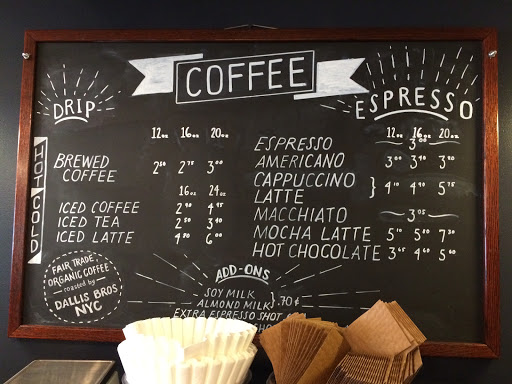 COFFEE
DRIP
12oz 16oz 20oz
HOT
BREWED COFFEE 2⁵⁰ 2⁷⁵ 3⁰⁰
COLD
16oz 24oz
ICED COFFEE 2⁹⁰ 4⁹⁵
ICED TEA 2⁵⁰ 3⁴⁰
ICED LATTE 4⁵⁰ 6⁰⁰
FAIR TRADE
ORGANIC COFFEE
roasted by
DALLIS BROS
NYC
ESPRESSO
12oz 16oz 20oz
ESPRESSO 3⁰⁰
AMERICANO 3⁰⁰ 3⁴⁰ 3⁸⁰
CAPPUCCINO
LATTE } 4¹⁰ 4⁹⁰ 5⁷⁵
MACCHIATO 3⁰⁵
MOCHA LATTE 5¹⁰ 5⁸⁰ 7³⁰
HOT CHOCOLATE 3⁶⁵ 4⁶⁰ 5⁶⁰
ADD-ONS
SOY MILK
ALMOND MILK } .70¢
EXTRA ESPRESSO SHOT